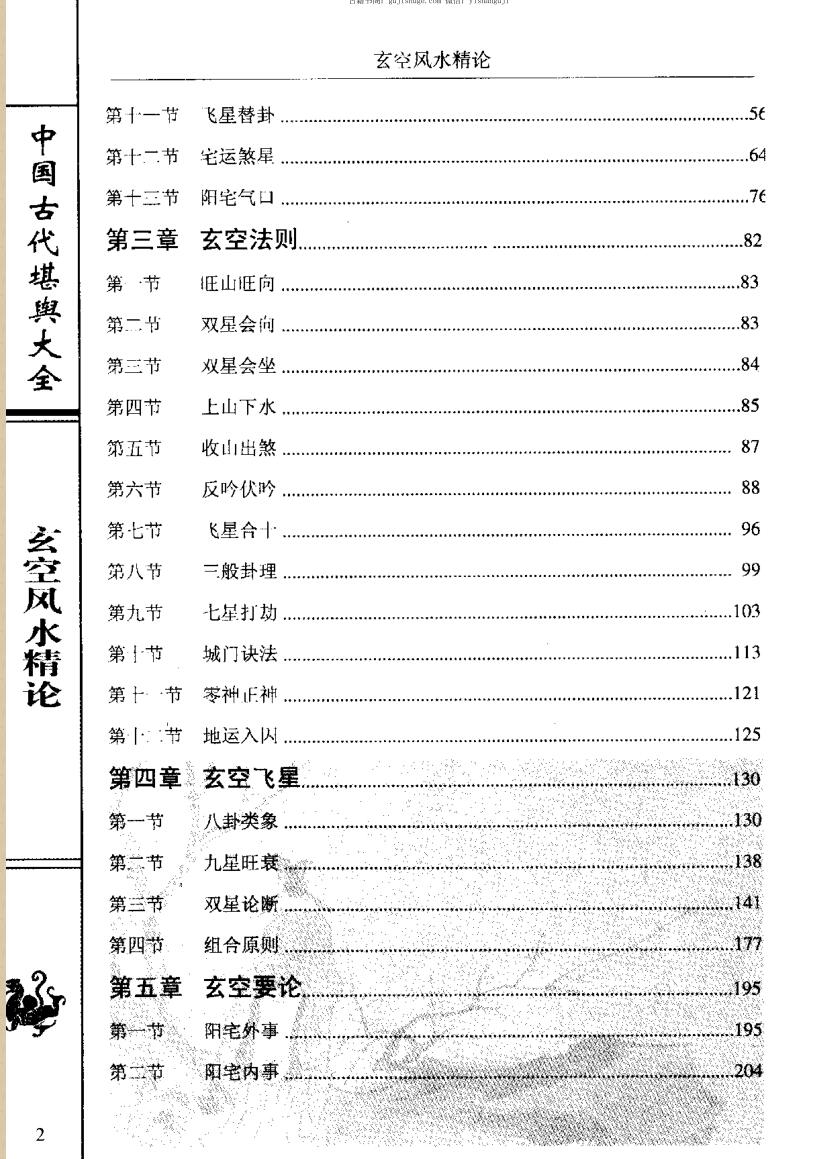 玄空风水精论
第十一节 飞星替卦 56
第十二节 宅运煞星 64
第十三节 阳宅气口 76
第三章 玄空法则 82
第一节 旺山旺向 83
第二节 双星会向 83
第三节 双星会坐 84
第四节 上山下水 85
第五节 收山出煞 87
第六节 反吟伏吟 88
第七节 飞星合十 96
第八节 三般卦理 99
第九节 七星打劫 103
第十节 城门诀法 113
第十一节 零神正神 121
第十二节 地运入囚 125
第四章 玄空飞星 130
第一节 八卦类象 130
第二节 九星旺衰 138
第三节 双星论断 141
第四节 组合原则 177
第五章 玄空要论 195
第一节 阳宅外事 195
第二节 阳宅内事 204
中国古代堪舆大全
玄空风水精论
2